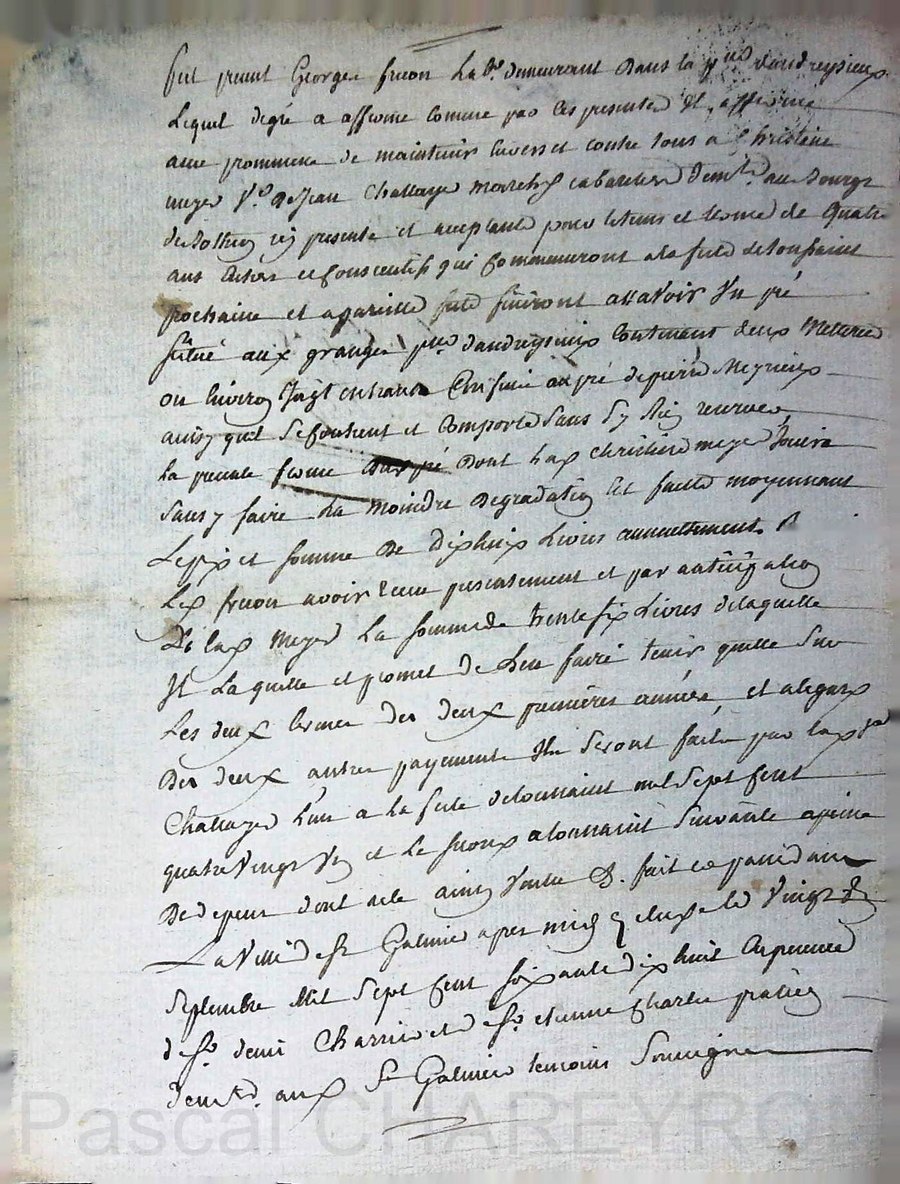 fut présent George fréon lab.r demeurant dans la p.sse d'andreysieux
Lequel degré a afferme comme par ces presentes Il afferme
avec prommesse de maintenir envers et contre tous a Christine
meyer V.e de Jean Challaye march.d cabaretier dem.te au bourg
de Bothéon icy presente et acceptante pour le tems et terme de quatre
ans entiers et consecutifs qui commenceront a la fete de toussaint
prochaine et a pareille fete finiront assavoir Un pré
situé aux granges p.sse d'andreysieux contenant deux Metterée
ou environ Joignt
au pré de pierre Meyrieux
ainsy quil se contient et comporte sans s'y Rien reserver
la presente ferme dont lad christine meyer Jouira
sans y faire la moindre degradation Et faitte moyennant
Le prix et somme de dixhuit Livres annuellement
Led fréon avoir Receu presentement et par anticipation
De lad meyer la somme de trente six Livres delaquelle
Il la quitte et promet de Len faire tenir quitte sur
Les deux termes des deux premières année, et alegard
Des deux autres payements Ils seront fait par lad
Challayer L'un a la fete detoussaint mil sept cent
quatre Vingt Un et le second a toussaint suivante apeine
De depens dont acte ainsy Voulu &. fait et passé dans
La Ville de St Galmier apres midy Le Vingt
Septembre Mil Sept Cent soixante dix huit En presence
de S.r denis Charrin et de S.r etienne Charles praticien
dem.t aud St Galmier temoins Soussignes
Pascal CHAREYRO